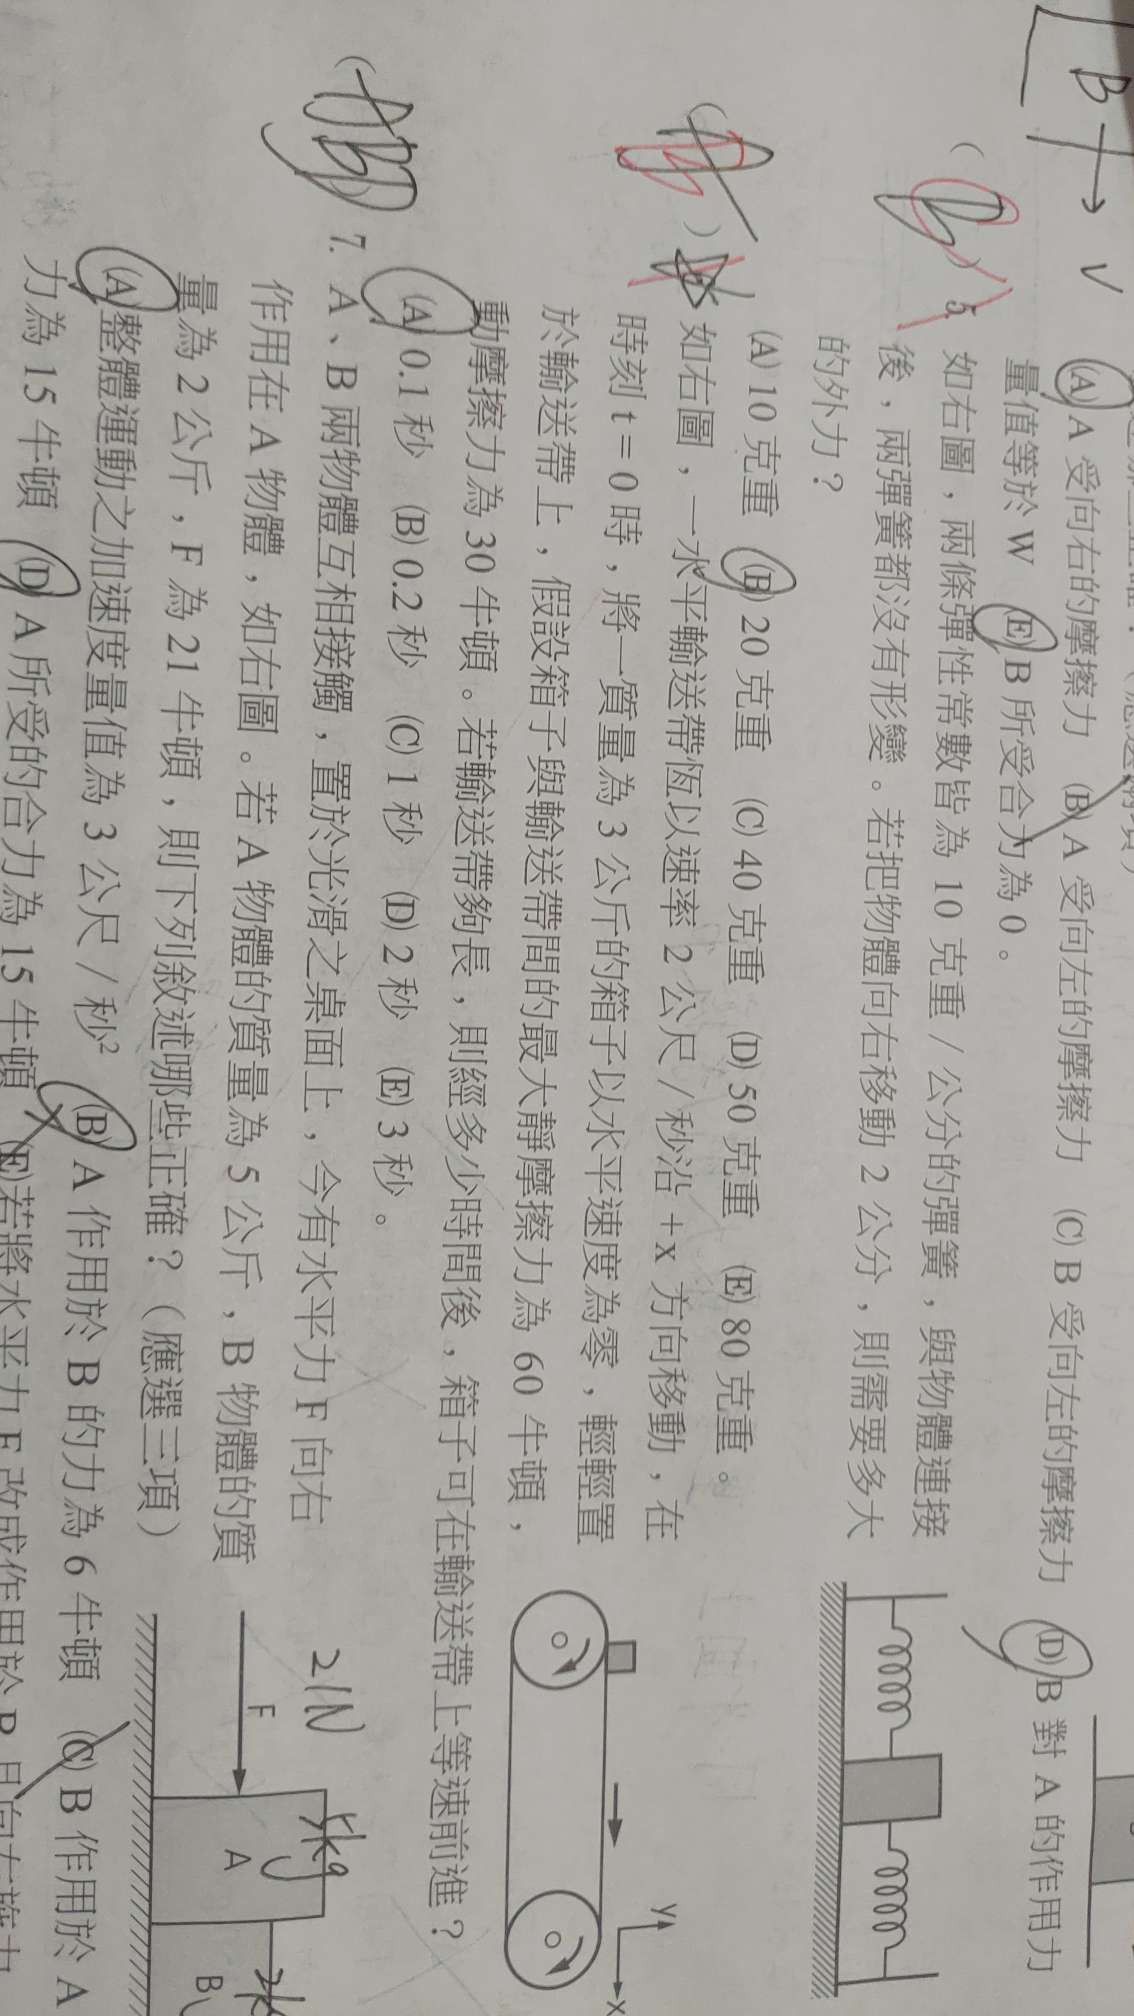 B → V
(A) A 受向右的摩擦力 (B) A 受向左的摩擦力 (C) B 受向左的摩擦力 (D) B 對 A 的作用力
量值等於 W (E) B 所受合力為 0。
( B ) 5. 如右圖，兩條彈性常數皆為 10 克重／公分的彈簧，與物體連接
後，兩彈簧都沒有形變。若把物體向右移動 2 公分，則需要多大
的外力？
(A) 10 克重 (B) 20 克重 (C) 40 克重 (D) 50 克重 (E) 80 克重。
如右圖，一水平輸送帶恆以速率 2 公尺／秒沿 +x 方向移動，在
時刻 t = 0 時，將一質量為 3 公斤的箱子以水平速度為零，輕輕置
於輸送帶上，假設箱子與輸送帶間的最大靜摩擦力為 60 牛頓，
動摩擦力為 30 牛頓。若輸送帶夠長，則經多少時間後，箱子可在輸送帶上等速前進？
(A) 0.1 秒 (B) 0.2 秒 (C) 1 秒 (D) 2 秒 (E) 3 秒。
y
x
7. A、B 兩物體互相接觸，置於光滑之桌面上，今有水平力 F 向右
作用在 A 物體，如右圖。若 A 物體的質量為 5 公斤，B 物體的質
量為 2 公斤，F 為 21 牛頓，則下列敘述哪些正確？（應選三項）
21N
5kg
F
A
B
(A) 整體運動之加速度量值為 3 公尺／秒² (B) A 作用於 B 的力為 6 牛頓 (C) B 作用於 A
力為 15 牛頓 (D) A 所受的合力為 15 牛頓 (E) 若將水平力 F 改成作用於 B 且向左施力